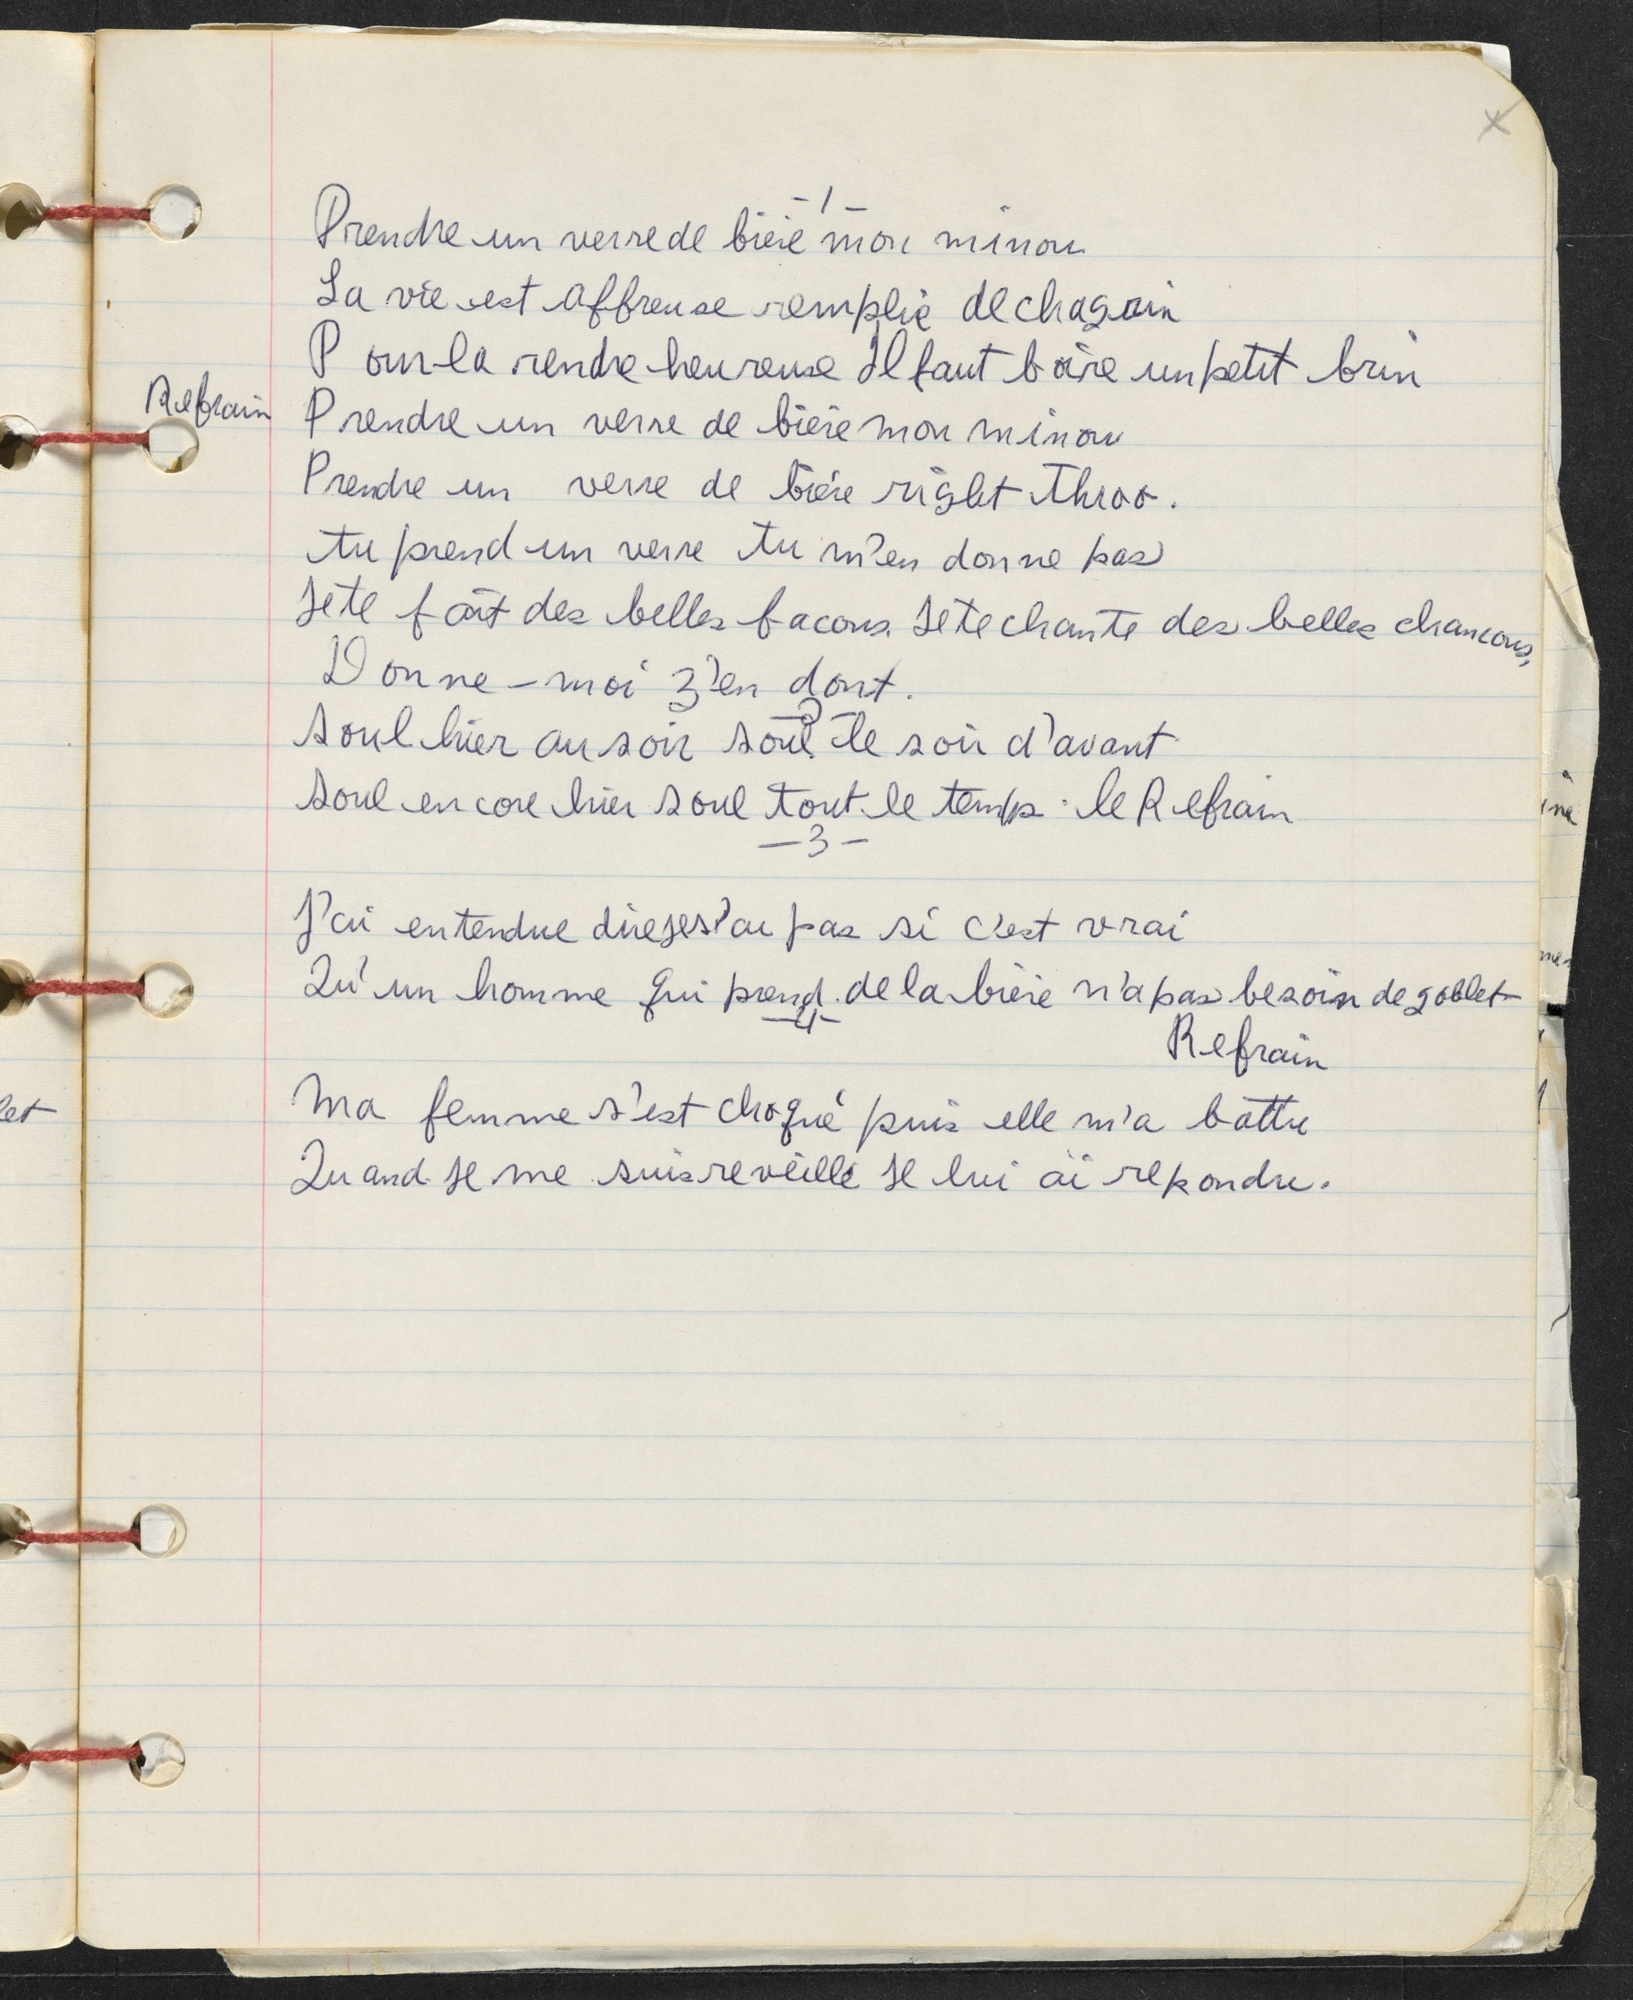 - 1 -
Prendre un verre de bière mon minou
La vie est affreuse remplie de chagrin
Pour la rendre heureuse Il faut boire un petit brin
Refrain Prendre un verre de bière mon minou
Prendre un verre de bière right throo.
tu prend un verre tu m'en donne pas
Je te fait des belles facons Je te chante des belles chancons,
Donne-moi z'en dont.
- 2 -
Soul hier au soir soul le soir d'avant
Soul encore hier soul tout le temps. le Refrain
- 3 -
J'ai entendue dire je s'ai pas si c'est vrai
Qu'un homme qui prend de la bière n'a pas besoin de goblet
- 4 -
Refrain
Ma femme s'est choqué puis elle m'a battu
Quand Je me suis reveillé Je lui ai repondu.
let